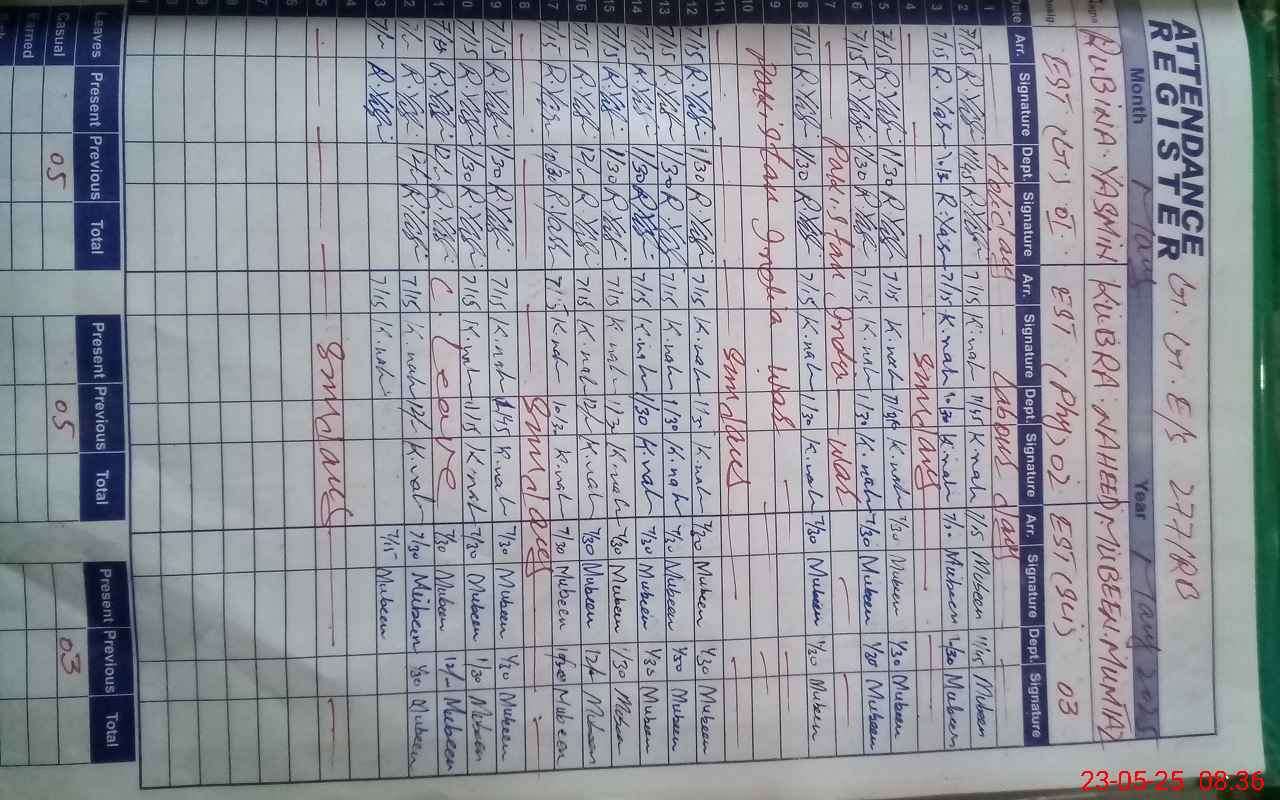 ATTENDANCE REGISTER Gr. Gr. E/S 277/RB
Month May Year May 2025
Name RUBINA. YASMIN KUBRA. NAHEED. MUBEEN. MUMTAZ
EST (Gr) 01. EST (Phy) 02 EST (Sci) 03
Date Arr. Signature Dept. Signature Arr. Signature Dept. Signature Arr. Signature Dept. Signature
1 Holiday Labour day
2 7/15 R. Yasi 11/45 R. Yasi 7/15 K. nah 11/45 K. nah 7/15 Mubeen 11/45 Mubeen
3 7/15 R. Yasi R. Yasi 7/15 K. nah K. nah Mubeen 1/30 Mubeen
4 Sundays
5 7/15 R. Yasi 1/30 R. Yasi 7/15 K. nah K. nah 7/30 Mubeen 1/30 Mubeen
6 7/15 R. Yasi 1/30 R. Yasi 7/15 K. nah 1/30 K. nah 7/30 Mubeen 1/30 Mubeen
7 Pakistan India War
8 7/15 R. Yasi 1/30 R. Yasi 7/15 K. nah 1/30 K. nah 7/30 Mubeen 1/30 Mubeen
9 Pakistan India War
10
11 Sundays
12 7/15 R. Yasi 1/30 R. Yasi 7/15 K. nah 1/30 K. nah 7/30 Mubeen 1/30 Mubeen
13 7/15 R. Yasi 1/30 R. Yasi 7/15 K. nah 1/30 K. nah 7/30 Mubeen 1/30 Mubeen
14 7/15 R. Yasi 1/30 R. Yasi 7/15 K. nah 1/30 K. nah 7/30 Mubeen 1/30 Mubeen
15 7/15 R. Yasi 1/30 R. Yasi 7/15 K. nah 1/30 K. nah 7/30 Mubeen 1/30 Mubeen
16 7/15 R. Yasi 12/- R. Yasi 7/15 K. nah 12/- K. nah 7/30 Mubeen 12/- Mubeen
17 7/15 R. Yasi 10/30 R. Yasi 7/15 K. nah 10/30 K. nah 7/30 Mubeen Mubeen
18 Sundays
19 7/15 R. Yasi 1/30 R. Yasi 7/15 K. nah K. nah 7/30 Mubeen 1/30 Mubeen
20 7/15 R. Yasi 1/30 R. Yasi 7/15 K. nah K. nah 7/30 Mubeen 1/30 Mubeen
21 R. Yasi 12/- R. Yasi C. Leave 7/30 Mubeen 12/- Mubeen
22 R. Yasi 12/- R. Yasi 7/15 K. nah 12/- K. nah 7/30 Mubeen 1/30 Mubeen
23 R. Yasi 7/15 K. nah 7/15 Mubeen
4
5 Sundays
6
7
8
9
Leaves Present Previous Total Present Previous Total Present Previous Total
Casual 05 05 03
Earned
23-05-25 08:36